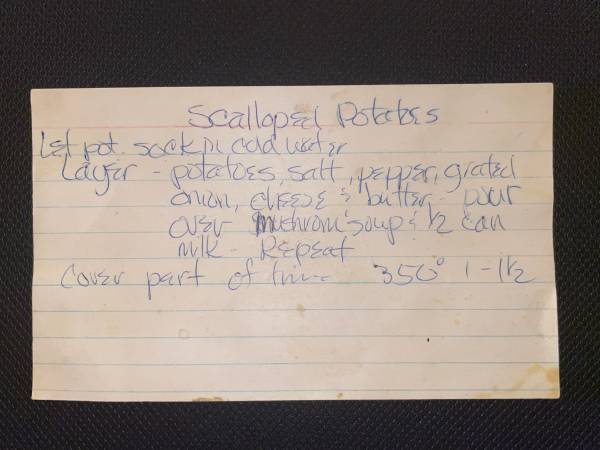 Scalloped Potatoes
Let pot. sock in cold water
Layer - potatoes, salt, pepper, grated
onion, cheese & butter - pour
over mushrom soup & 1/2 can
milk - Repeat
Cover part of time 350° 1 - 1 1/2